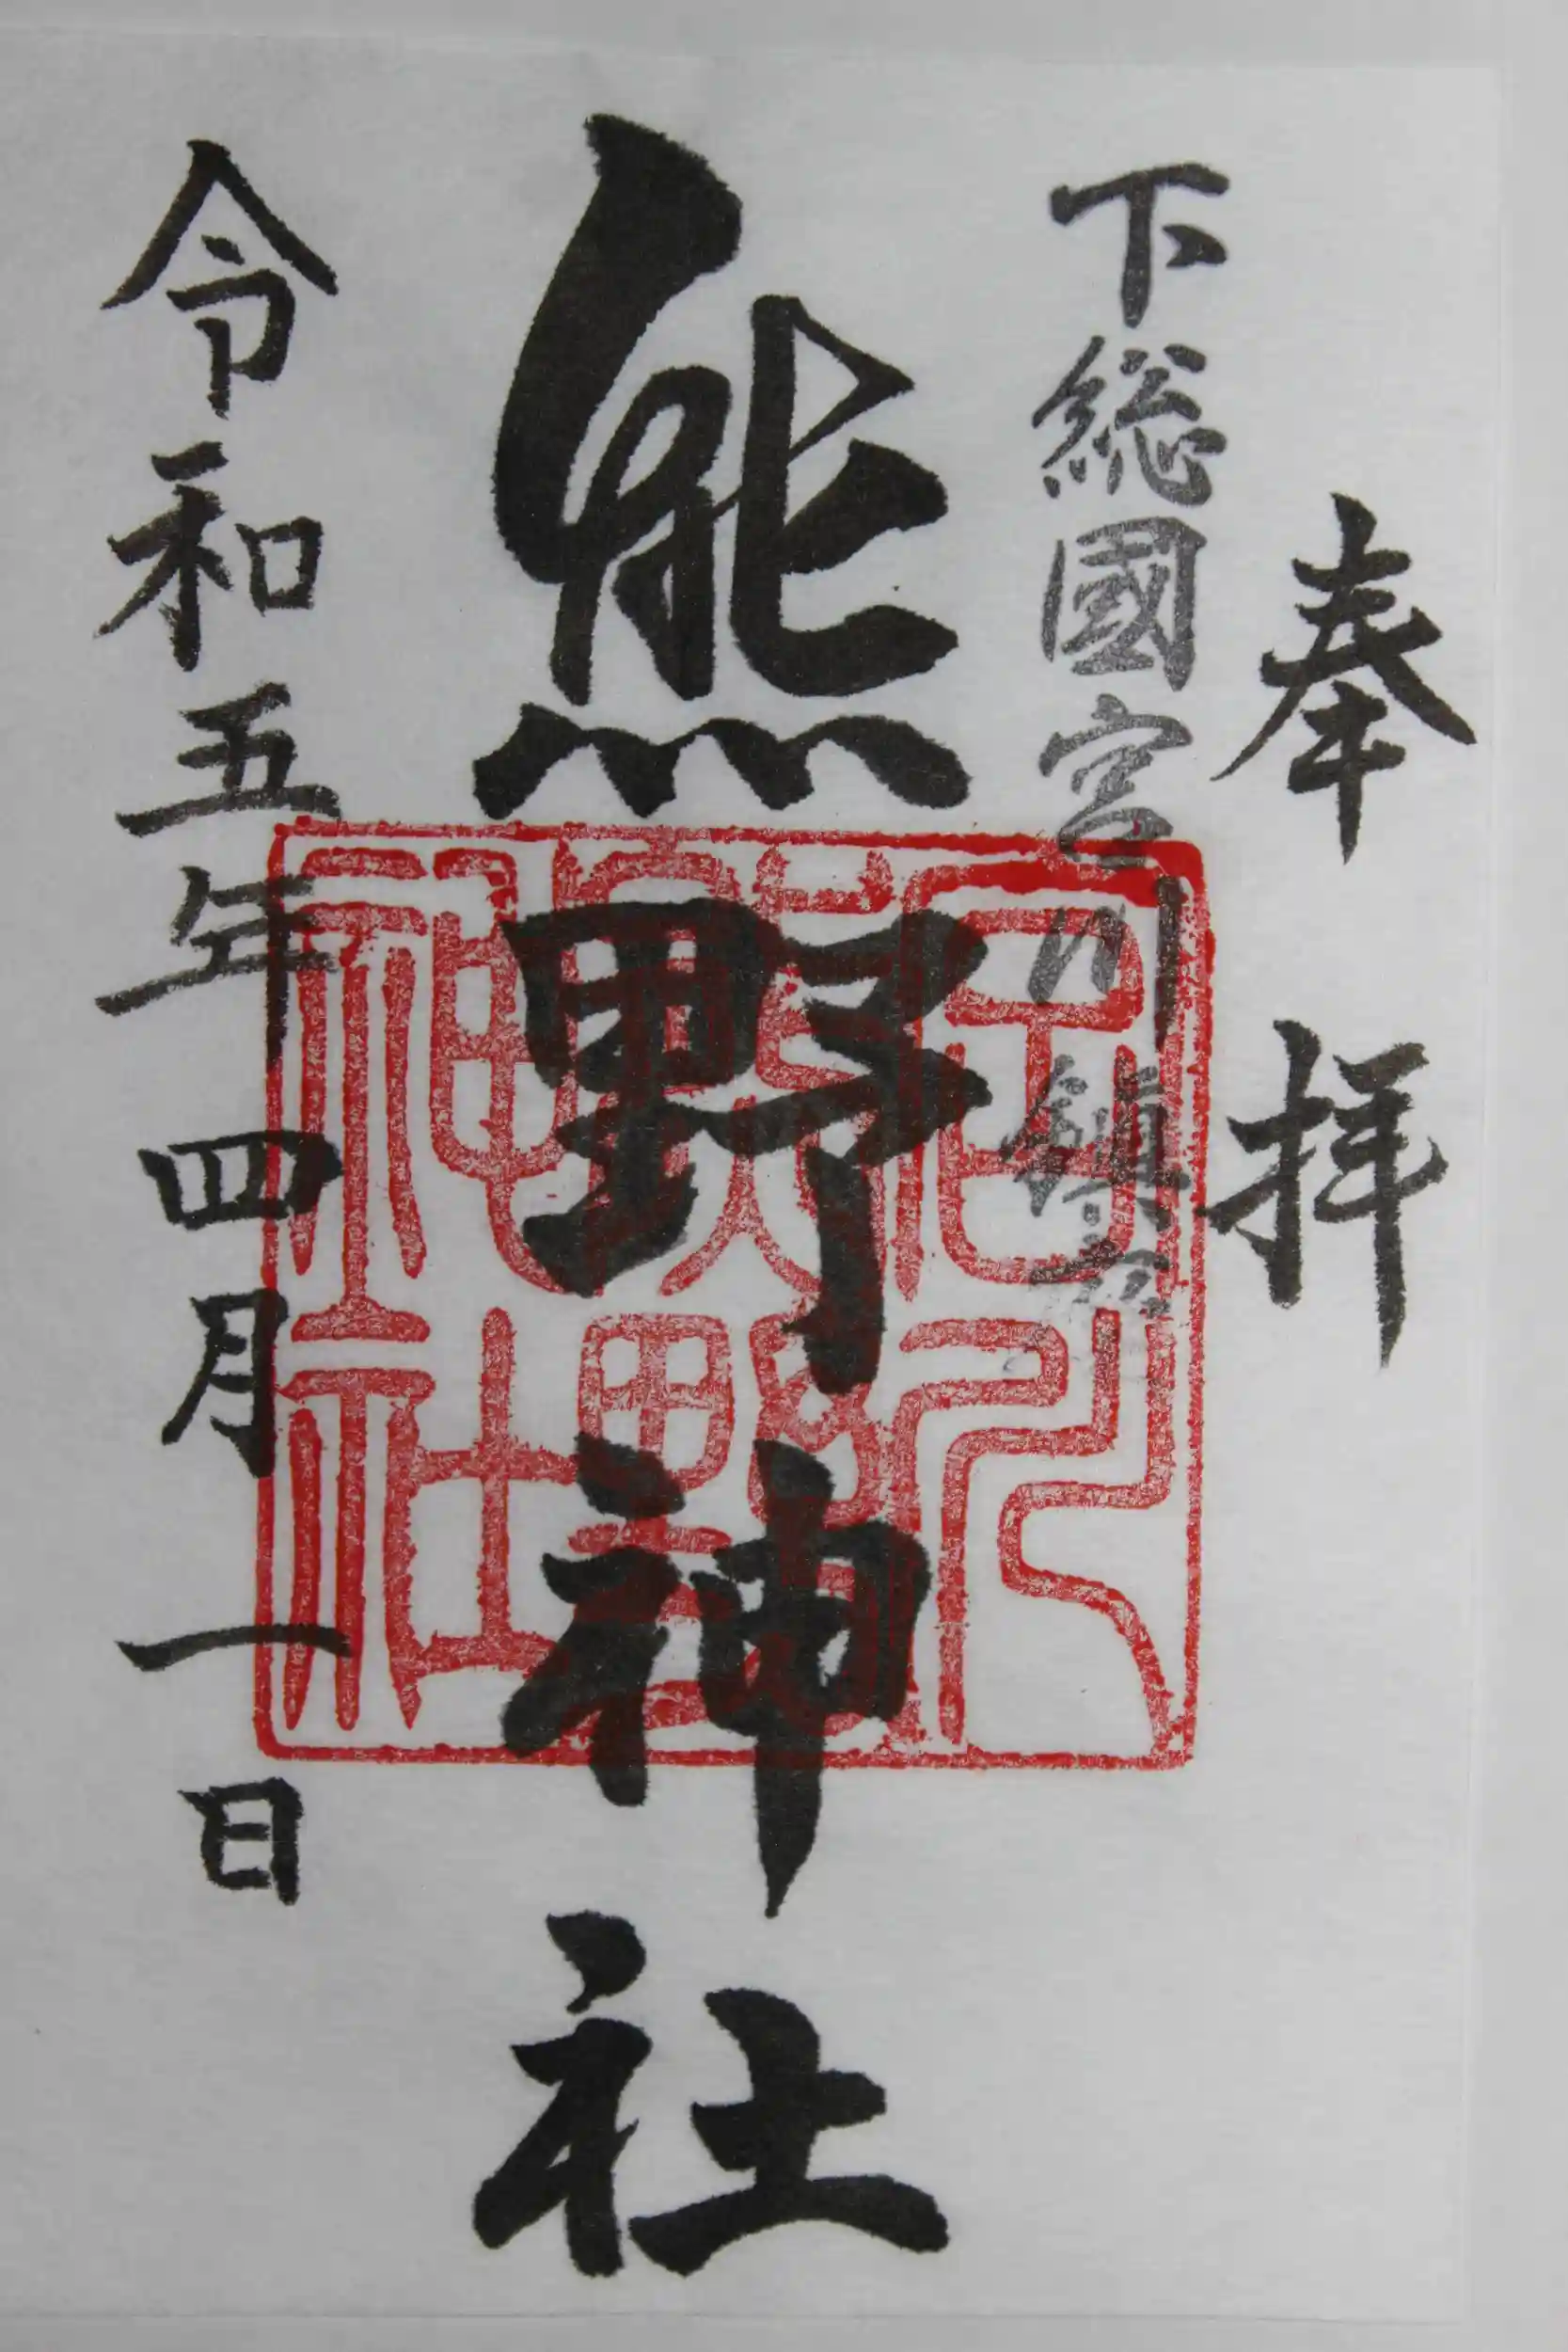 奉拝
下総國宮川鎮座
熊野神社
令和五年四月一日
宮川
熊野
神社